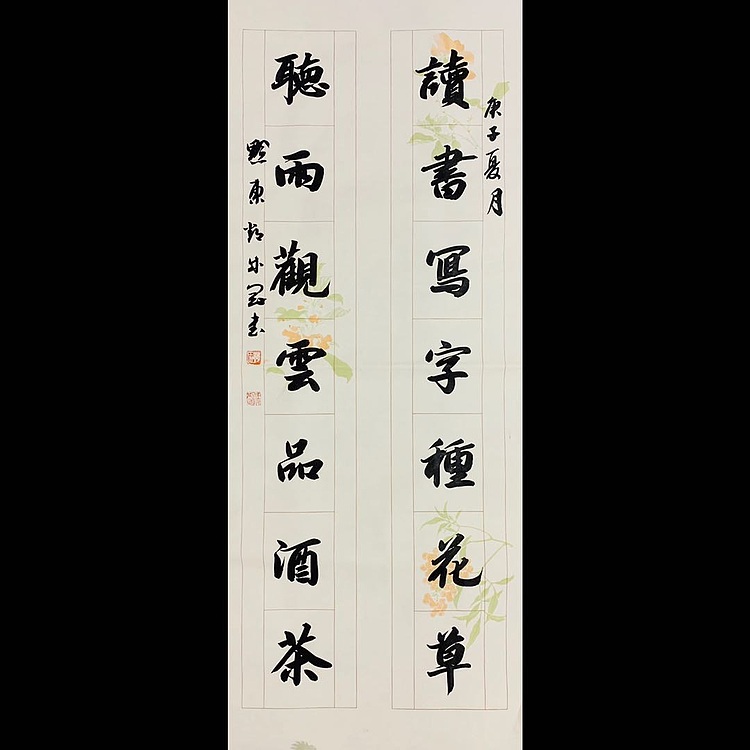 庚子夏月
讀書寫字種花草
聽雨觀雲品酒茶
黔東
書